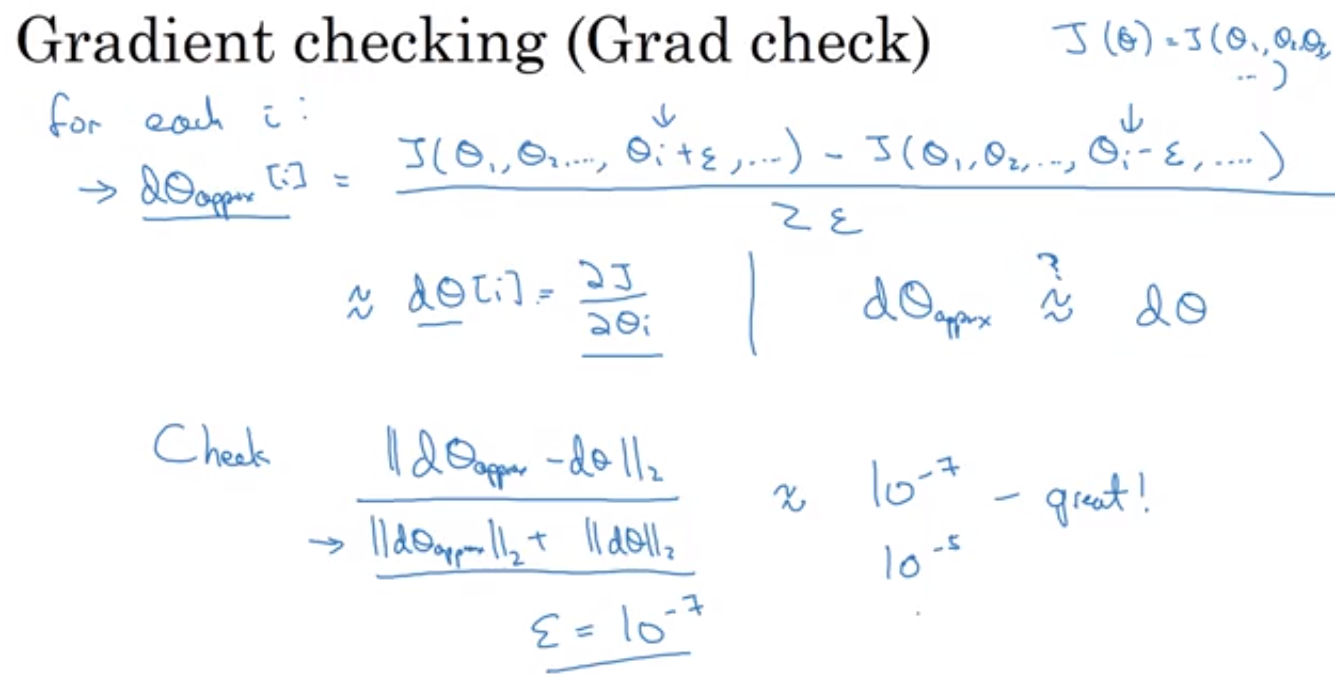 Gradient checking (Grad check)
J(θ) = J(θ₁, θ₂, θ₃, ...)
for each i:
→ dθ_approx[i] = (J(θ₁, θ₂, ..., θᵢ + ε, ...) - J(θ₁, θ₂, ..., θᵢ - ε, ....)) / 2ε
≈ dθ[i] = ∂J/∂θᵢ | dθ_approx ≈? dθ
Check ‖dθ_approx - dθ‖₂ / (‖dθ_approx‖₂ + ‖dθ‖₂) ≈ 10⁻⁷ - great!
→ 10⁻⁵
ε = 10⁻⁷